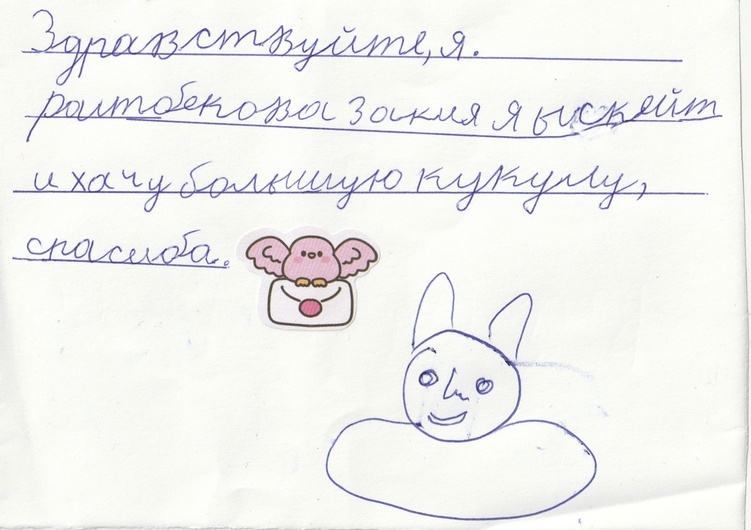 Здравствуйте, я.
ралтобекова закия я
и хачу большую кукулу,
спасиба.